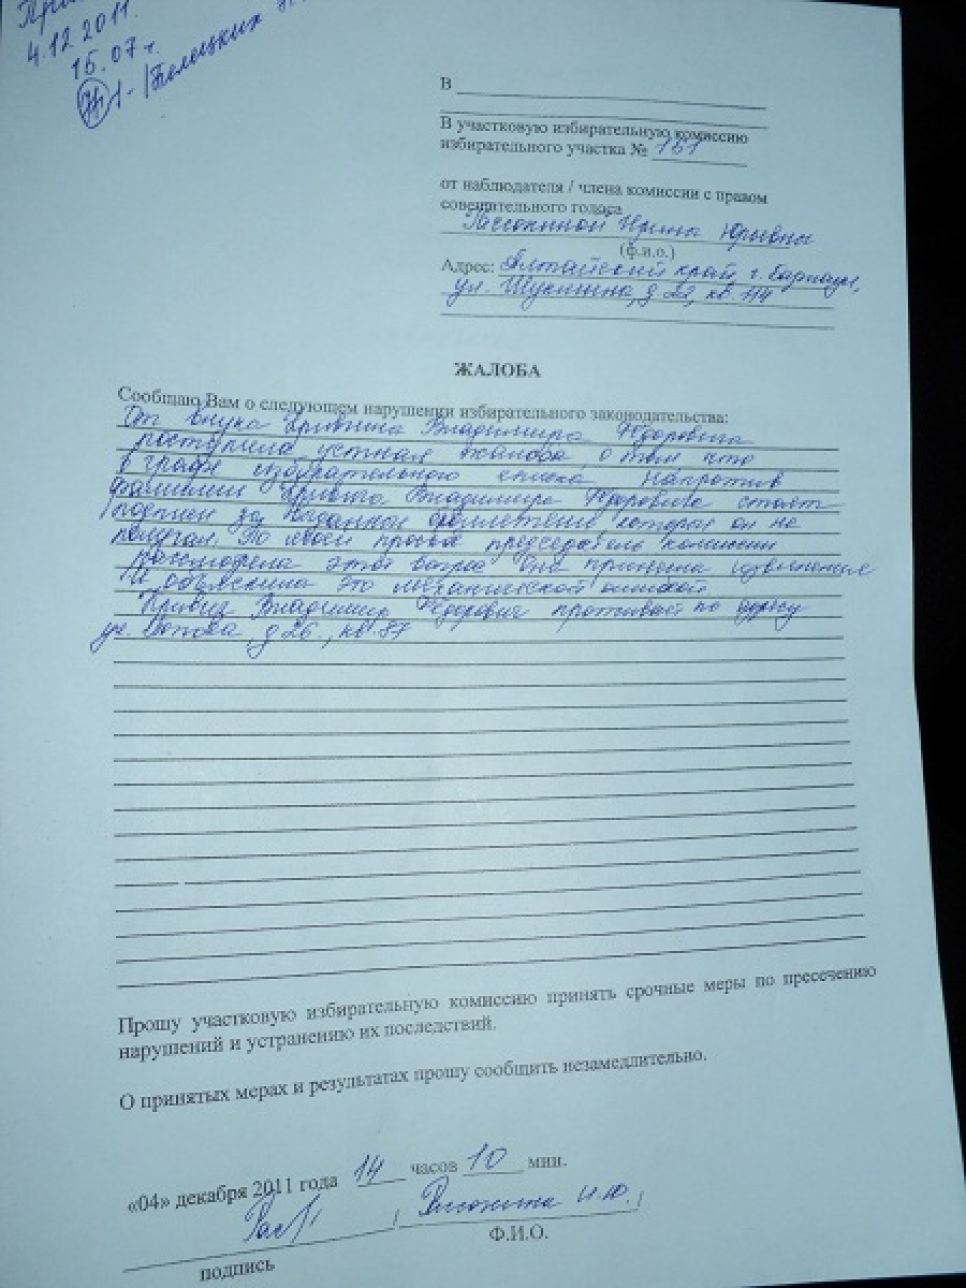 4.12.2011.
15.07 г.
В
В участковую избирательную комиссию
избирательного участка № 151
от наблюдателя / члена комиссии с правом
совещательного голоса
Ирины Юрьевны
(ф.и.о.)
Адрес: Алтайский край, г. Барнаул,
ул. Шукшина, д 22, кв.
ЖАЛОБА
Сообщаю Вам о следующем нарушении избирательного законодательства:
От внука Владимира Фёдоровича
поступила устная жалоба, о том что
в графе избирательного списка напротив
фамилии Владимира Фёдоровича стоят
подписи за бюллетени которые он не
получал. По моей просьбе председатель комиссии
рассмотрела этот вопрос. Она принесла извинение
И объяснила это механической ошибкой
Владимир Фёдорович проживает по адресу
ул. д 26., кв. 87
Прошу участковую избирательную комиссию принять срочные меры по пресечению
нарушений и устранению их последствий.
О принятых мерах и результатах прошу сообщить незамедлительно.
«04» декабря 2011 года 14 часов 10 мин.
И.Ю.
Ф.И.О.
подпись